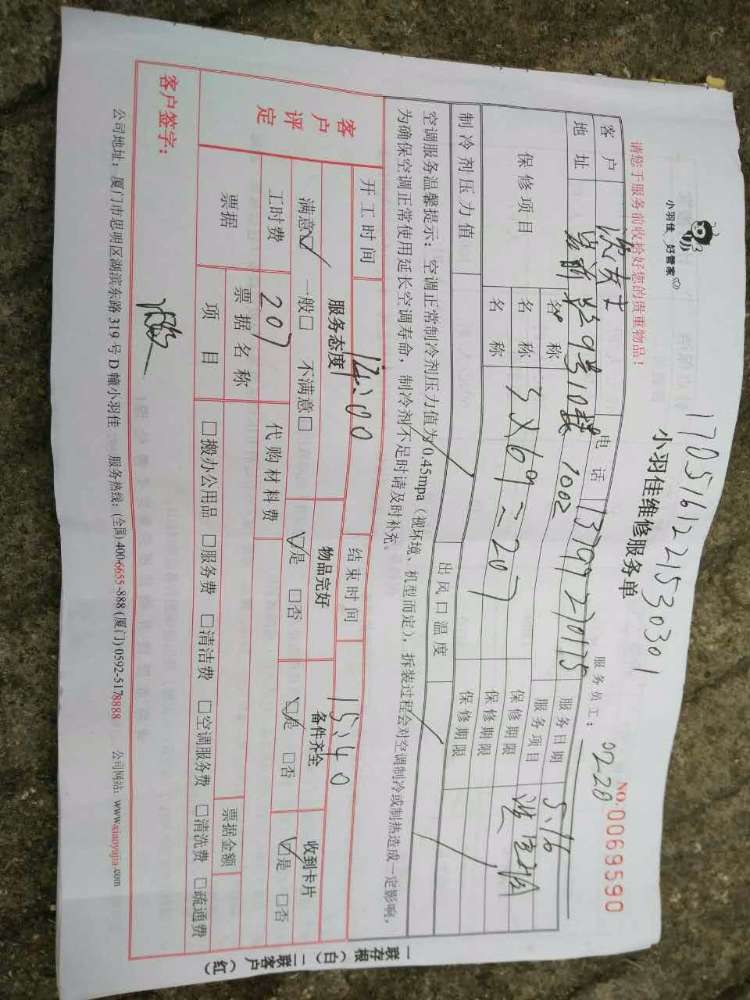 1705161221530301
小羽佳 好管家
小羽佳维修服务单
NO.0069590
请您于服务前收拾好您的贵重物品！
服务员工： 02-20
客户 沈女士 电话 13797270175 服务日期 5.16
地址 9号10楼 1002 服务项目 洗空调
保修项目 名称 保修期限
名称 3X69=207 保修期限
名称 保修期限
制冷剂压力值 出风口温度
空调服务温馨提示：空调正常制冷剂压力值为0.45mpa（视环境、机型而定），拆装过程会对空调制冷或制热造成一定影响，
为确保空调正常使用延长空调寿命，制冷剂不足时请及时补充。
开工时间 14:00 结束时间 15:40
客户评定 服务态度 物品完好 备件齐全 收到卡片
满意☑ 一般□ 不满意□ ☑是 □否 ☑是 □否 ☑是 □否
工时费 207 代购材料费
票据 票据名称 票据金额
项目 □搬办公用品 □服务费 □清洁费 □空调服务费 □清洗费 □疏通费
客户签字：
公司地址：厦门市思明区湖滨东路319号D幢小羽佳 服务热线：(全国)400-6655-888 (厦门)0592-5178888 公司网站：www.xiaoyujia.com
一联存根（白）二联客户（红）